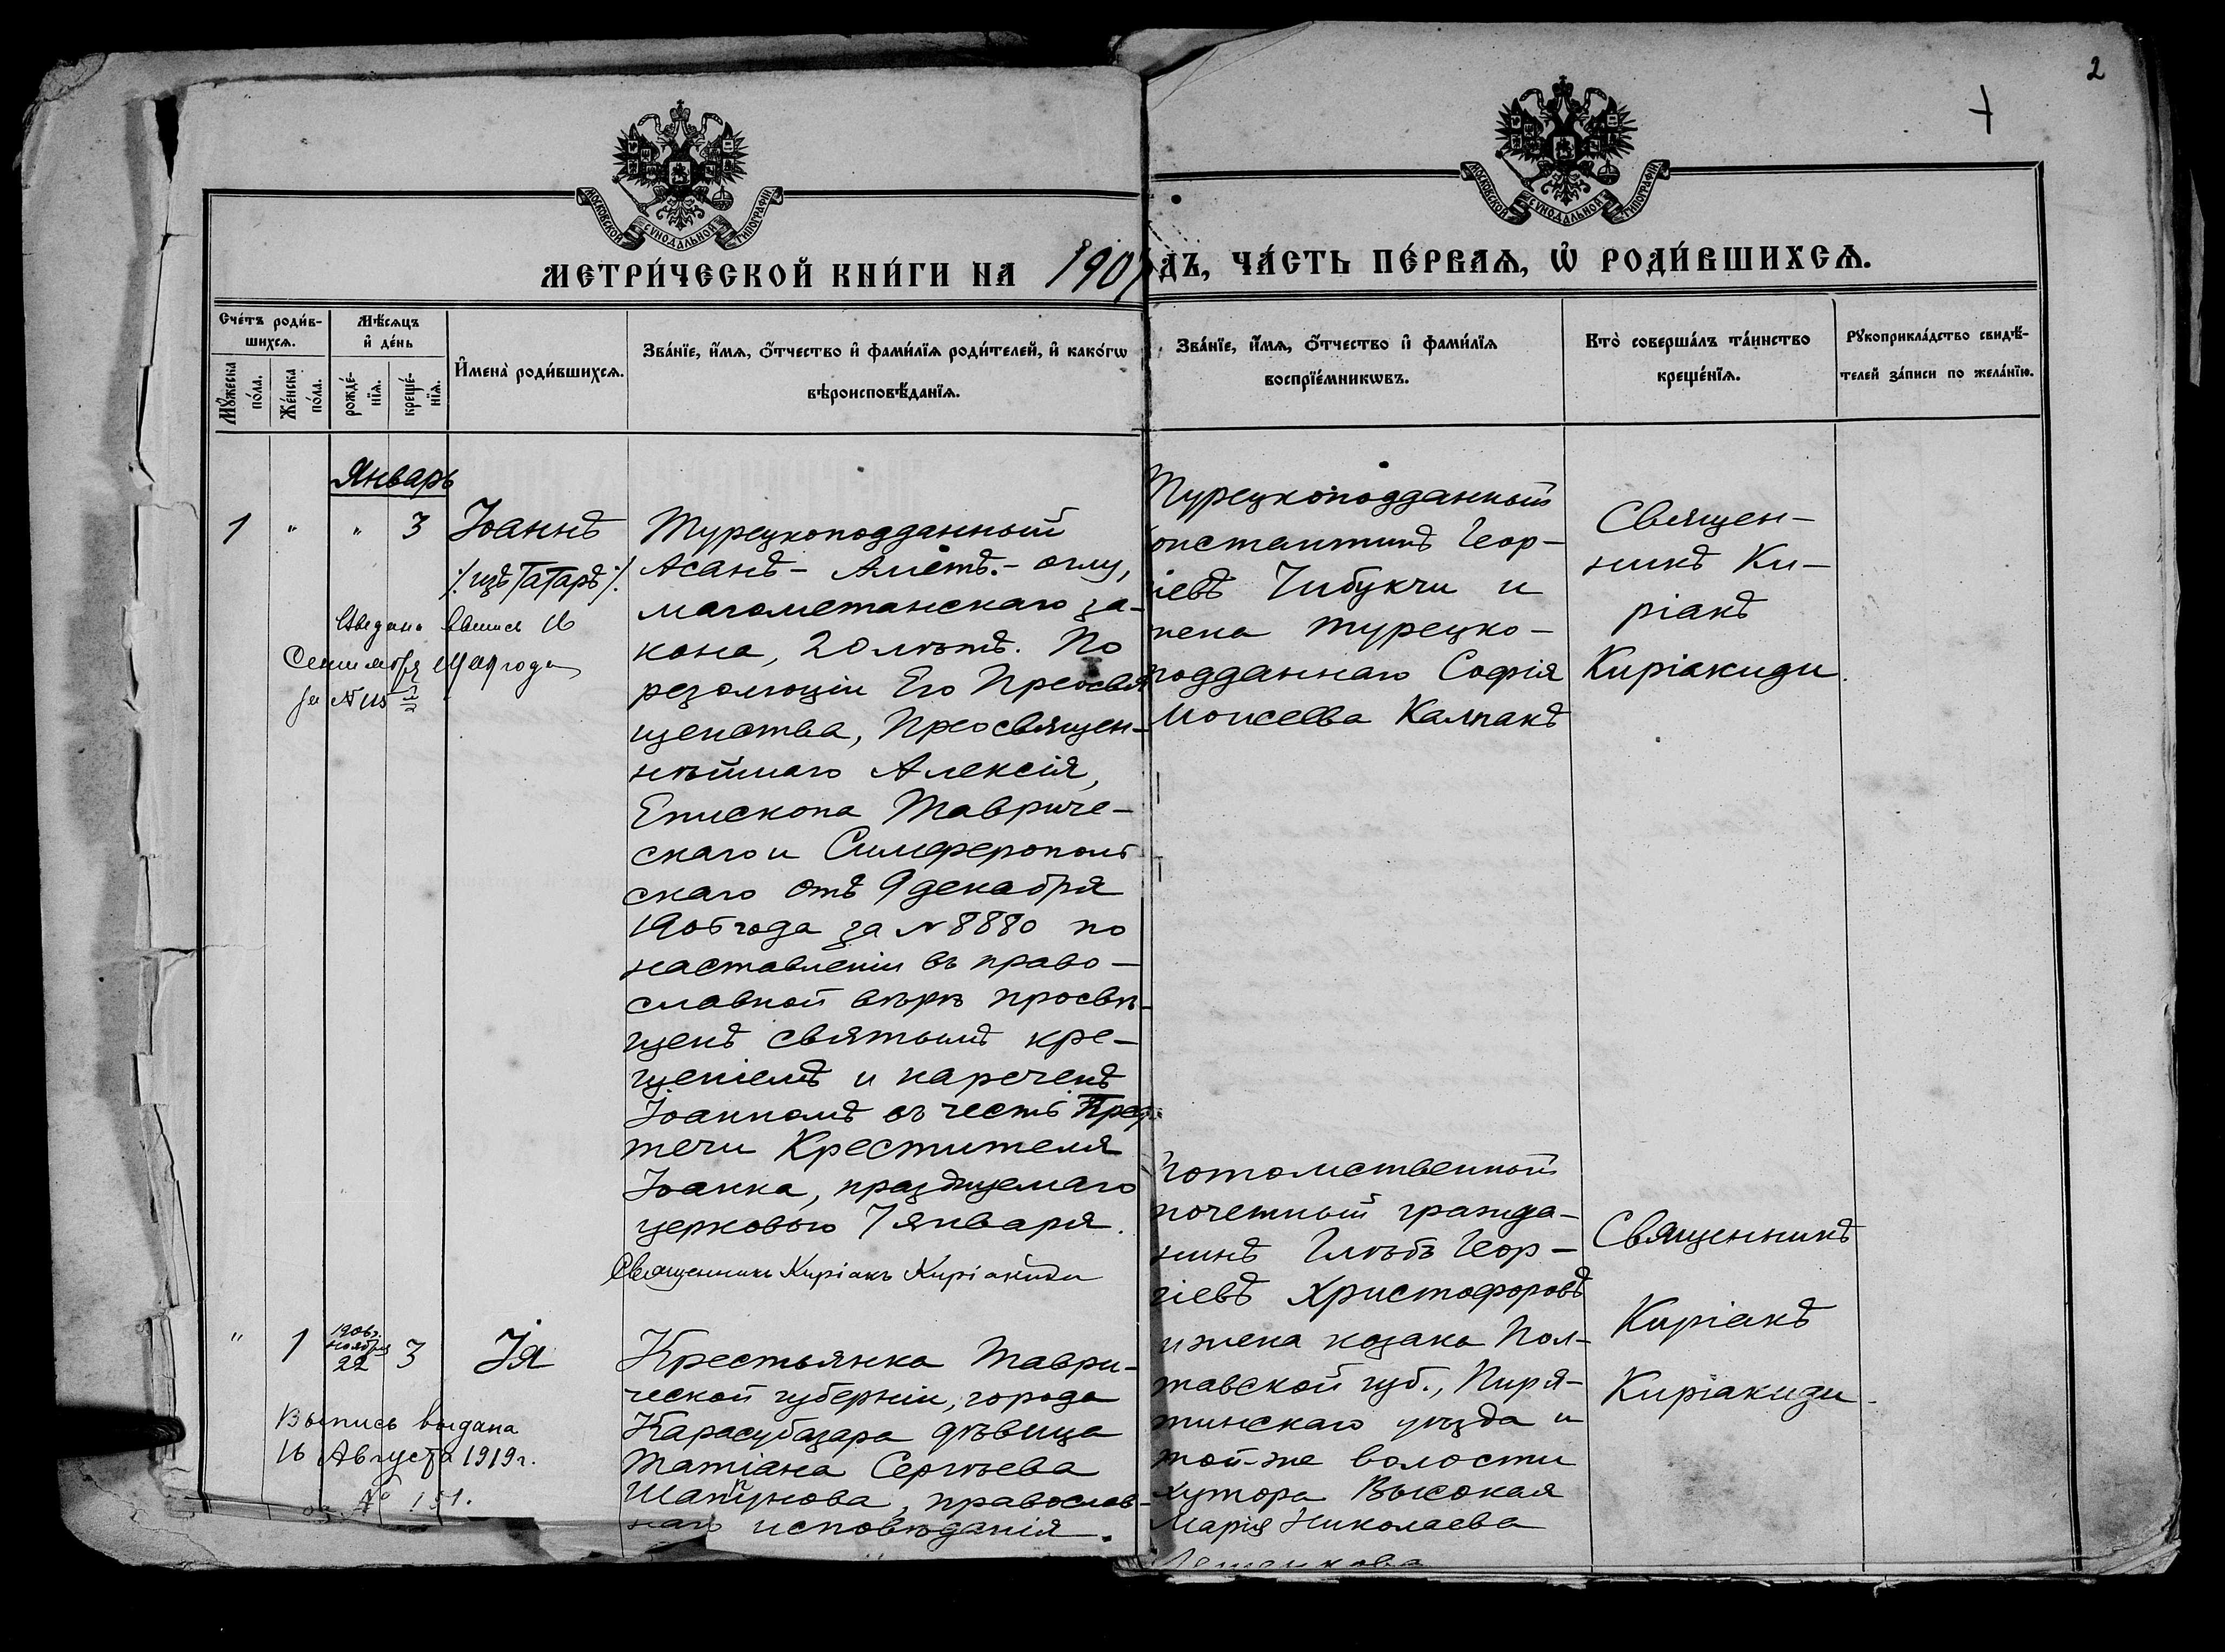 2
МОСКОВСКОЙ СѴНОДАЛЬНОЙ ТИПОГРАФІИ
МОСКОВСКОЙ СѴНОДАЛЬНОЙ ТИПОГРАФІИ
МЕТРИ́ЧЕСКОЙ КНИ́ГИ НА 190
ДЪ, ЧА́СТЬ ПЕ́РВАѦ, Ѡ҆ РОДИ́ВШИХСѦ.
Сче́тъ роди́в-
шихсѧ.
Мꙋ́жеска по́ла.
Же́нска по́ла.
Мѣ́сѧцъ
и҆ де́нь
рожде́-
нїѧ.
креще́-
нїѧ.
И҆мена̀ роди́вшихсѧ.
Зва́нїе, и҆́мѧ, ѻ҆́тчество и҆ фами́лїѧ роди́телей, и҆ како́гѡ
вѣроисповѣ́данїѧ.
Зва́нїе, и҆́мѧ, ѻ҆́тчество и҆ фами́лїѧ
воспрїе́мникѡвъ.
Кто̀ соверша́лъ та́инство
креще́нїѧ.
Рꙋкоприкла́дство свидѣ́-
телей за́писи по жела́нїю.
Январь
1 " " 3 Іоаннъ
/изъ Татаръ/.
выпись 16
Сентября года
за №
Турецкоподданный
Асанъ-Аметъ-оглу,
магометанскаго за-
кона, 20 лѣтъ. По
резолюціи Его Преосвя
щенства, Преосвящен-
нѣйшаго Алексія,
Епископа Тавриче-
скаго и Симферополь
скаго отъ 9 декабря
1906 года за № 8880 по
наставленіи въ право-
славной вѣрѣ просвѣ-
щенъ святымъ кре-
щеніемъ и нареченъ
Іоанномъ въ честь Пред-
течи Крестителя
Іоанна, празднуемаго
церковью 7 января.
Священникъ Киріакъ Киріакиди
Турецкоподданный
онстантинъ Геор-
іевъ Чибукчи и
жена турецко-
подданнаго Софія
Моисеева Калпакъ
Священ-
никъ Ки-
ріакъ
Киріакиди.
" 1 1906 г.
ноября
22 3 Ія
Выпись выдана
16 Августа 1919 г.
за № 151.
Крестьянка Таври-
ческой губерніи, города
Карасубазара дѣвица
Татіана Сергѣева
Шапунова, православ-
наго исповѣданія.
Потомственный
почетный гражда-
нинъ Глѣбъ Геор-
гіевъ Христофоровъ
и жена козака Пол-
тавской губ., Пиря-
тинскаго уѣзда и
той-же волости
хутора Высокая
Марія Николаева
Священникъ
Киріакъ
Киріакиди.